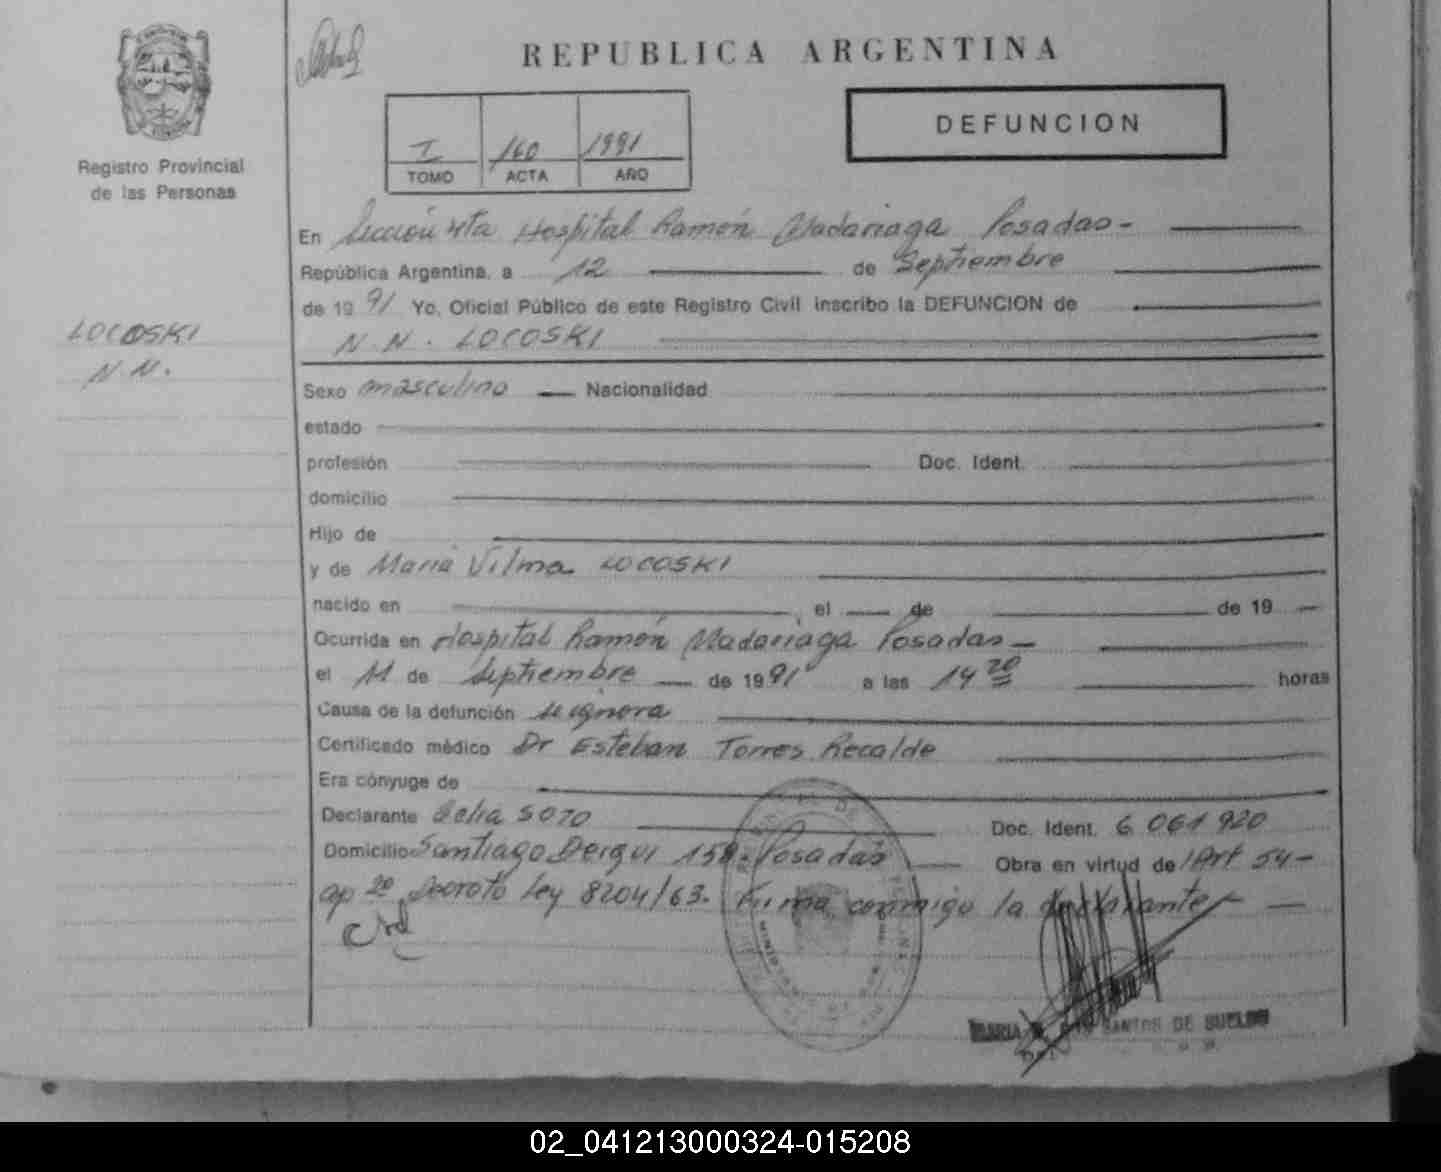 REPUBLICA ARGENTINA
DEFUNCION
I 160 1991
TOMO ACTA AÑO
Registro Provincial
de las Personas
En Sección 4ta Hospital Ramón Madariaga Posadas-
República Argentina, a 12 de Septiembre
de 1991 Yo, Oficial Público de este Registro Civil inscribo la DEFUNCION de
N.N. LOCOSKI
LOCOSKI
N.N.
Sexo masculino Nacionalidad
estado
profesión Doc. Ident.
domicilio
Hijo de
y de Maria Vilma LOCOSKI
nacido en el de de 19
Ocurrida en Hospital Ramón Madariaga Posadas-
el 11 de Septiembre de 1991 a las 14 20 horas
Causa de la defunción se ignora
Certificado médico Dr Esteban Torres Recalde
Era cónyuge de
Declarante Delia SOTO Doc. Ident. 6 061 920
Domicilio Santiago Derqui 158- Posadas Obra en virtud de Art 54-
ap 20 Decreto Ley 8204/63. Firma conmigo la declarante
MARIA SANTOS DE SUELDO
02_041213000324-015208